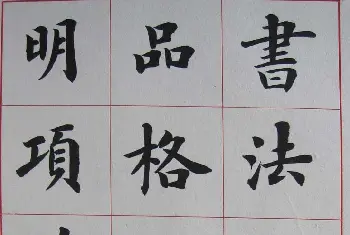 書法
品格
明項